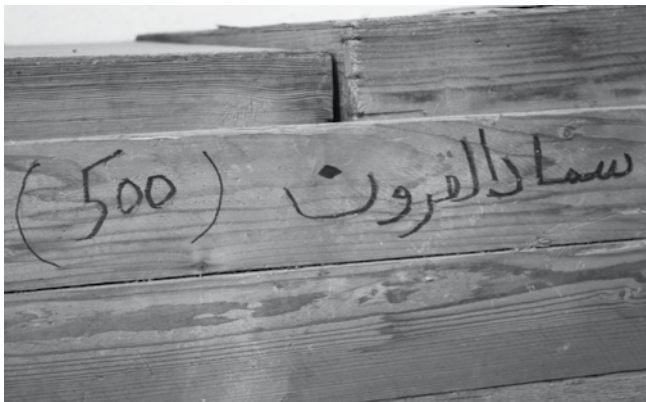 سماد القرون (500)